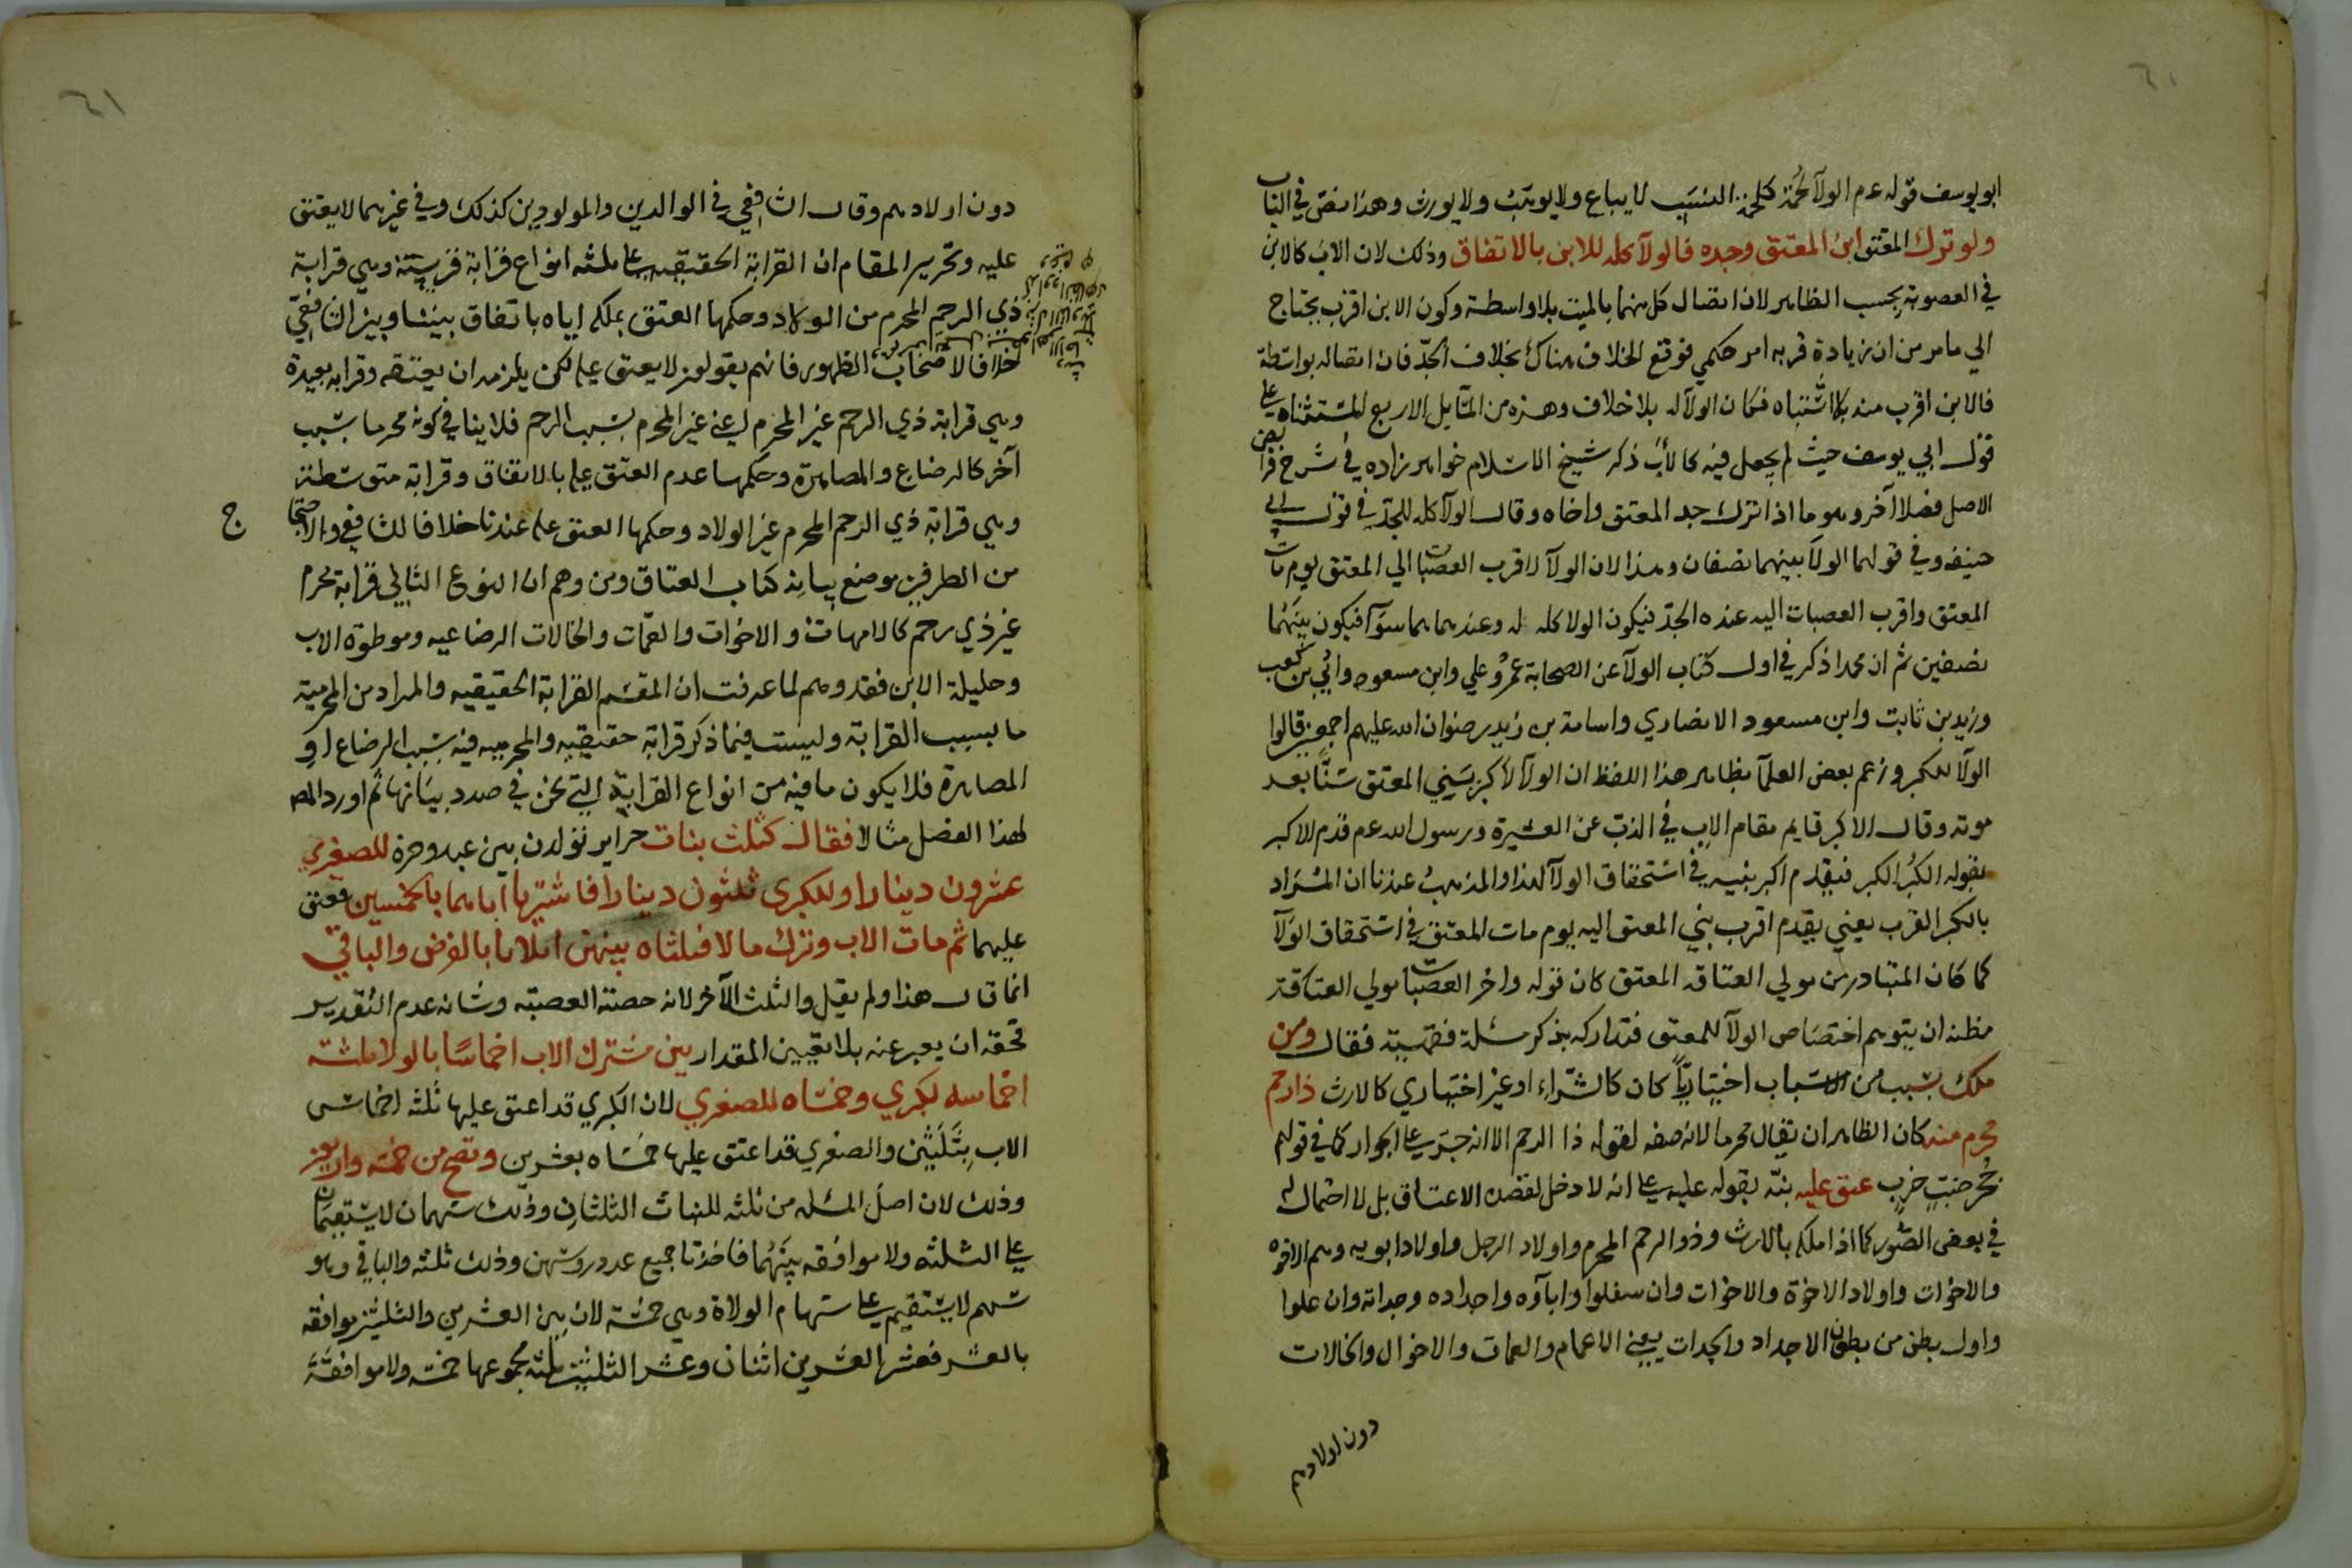 ابو يوسف قوله عم الولآ لحمة كلحمة النسب لا يباع ولا يوهب ولا يورث وهذا نص في الباب
ولو ترك المعتق ابن المعتق وجده فالولآ كله للابن بالاتفاق وذلك لان الاب كالابن
في العصوبة بحسب الظاهر لان اتصال كل منهما بالميت بلا واسطة وكون الابن اقرب يحتاج
الي ما مر من ان زيادة قربه امر حكمي فوقع الخلاف هناك بخلاف الجد فان اتصاله بواسطة
فالابن اقرب منه بلا اشتباه فكان الولآ له بلا خلاف وهذه من المسايل الاربع المستثناه علي
قول ابي يوسف حيث لم يجعل فيه كالاب ذكر شيخ الاسلام خواهر زاده في شرح فرايض
الاصل فصلا آخر وهو ما اذا ترك جد المعتق واخاه وقال الولآ كله للجد في قول ابي
حنيفه وفي قولهما الولآ بينهما نصفان وهذا لان الولآ لاقرب العصبات الي المعتق يوم مات
المعتق واقرب العصبات اليه عنده الجد فيكون الولا كله له وعندهما هما سوآ فيكون بينهما
نصفين ثم ان محمدا ذكر في اول كتاب الولآ عن الصحابة عمر وعلي وابن مسعود وابي بن كعب
وزيد بن ثابت وابن مسعود الانصاري واسامة بن زيد رضوان الله عليهم اجمعين قالوا
الولآ للكبر وزعم بعض العلمآ بظاهر هذا اللفظ ان الولآ لاكبر بني المعتق سنا بعد
موته وقال الاكبر قايم مقام الاب في الذب عن العشيرة ورسول الله عم قدم الاكبر
بقوله الكبر الكبر فيقدم اكبر بنيه في استحقاق الولآ لهذا والمذهب عندنا ان المراد
بالكبر القرب يعني يقدم اقرب بني المعتق اليه يوم مات المعتق في استحقاق الولآ
كما كان المتبادر من مولي العتاقه المعتق كان قوله واخر العصبات مولي العتاقة
مظنه ان يتوهم اختصاص الولآ للمعتق فتداركه بذكر مسئلة فقهية فقال ومن
ملك بسبب من الاسباب اختياريا كان كالشراء او غير اختياري كالارث ذا رحم
محرم منه كان الظاهر ان يقال محرما لانه صفه لقوله ذا الرحم الا انه جر علي الجوار كما في قولهم
جحر ضب خرب عتق عليه نبه بقوله عليه علي انه لا دخل لقصد الاعتاق بل لا احتمال له
في بعض الصور كما اذا ملكه بالارث وذو الرحم المحرم اولاد الرجل واولاد ابويه وهم الاخوه
والاخوات واولاد الاخوة والاخوات وان سفلوا وابآؤه واجداده وجداته وان علوا
واول بطن من بطون الاجداد والجدات يعني الاعمام والعمات والاخوال والخالات
دون اولادهم
٦١
دون اولادهم وقال الشافعي في الوالدين والمولودين كذلك وفي غيرهما لا يعتق
عليه وتحرير المقام ان القرابة الحقيقيه علي ثلثه انواع قرابة قريبة وهي قرابة
ذي الرحم المحرم من الولاد وحكمها العتق بملكه اياه باتفاق بيننا وبين الشافعي
خلافا لاصحاب الظهور فانهم يقولون لا يعتق عليه لكن يلزمه ان يعتقه وقرابه بعيدة
وهي قرابة ذي الرحم غير المحرم يعني غير المحرم بسبب الرحم فلا ينافي كونه محرما بسبب
آخر كالرضاع والمصاهرة وحكمها عدم العتق عليه بالاتفاق وقرابة متوسطة
وهي قرابة ذي الرحم المحرم غير الولاد وحكمها العتق عليه عندنا خلافا للشافعي والاحتجاج
من الطرفين موضع بيانه كتاب العتاق ومن وهم ان النوع الثاني قرابة محرم
غير ذي رحم كالامهات والاخوات والعمات والخالات الرضاعيه وموطوة الاب
وحليلة الابن فقد وهم لما عرفت ان المقسم القرابة الحقيقيه والمراد من المحرمية
ما بسبب القرابة وليست فيما ذكر قرابة حقيقيه والمحرميه فيه بسبب الرضاع او
المصاهرة فلا يكون ما فيه من انواع القرابة التي نحن في صدد بيانها ثم اورد المص
لهذا الفصل مثالا فقال كثلث بنات حراير تولدن بين عبد وحرة للصغري
عشرون دينارا وللكبري ثلثون دينارا فاشتريا اباهما بالخمسين فعتق
عليهما ثم مات الاب وترك مالا فثلثاه بينهن اثلاثا بالفرض والباقي
انما قال هذا ولم يقل والثلث الآخر لانه حصة العصبة وشانه عدم التقدير
فحقه ان يعبر عنه بلا تعيين المقدار بين مشتري الاب اخماسا بالولا ثلثه
اخماسه لكبري وخمساه للصغري لان الكبري قد اعتق عليها ثلثه اخماس
الاب بثلثين والصغري قد اعتق عليها خمساه بعشرين وتصح من خمسه واربعين
وذلك لان اصل المسئله من ثلثه للبنات الثلثان وذلك سهمان لا يستقيمان
علي الثلثه ولا موافقه بينهما فاخذنا جميع عدد روسهن وذلك ثلثه والباقي وهو
سهم لا يستقيم علي سهام الولاة وهي خمسه لان بين العشرين والثلثين موافقه
بالعشر فعشر العشرين اثنان وعشر الثلثين ثلثه مجموعها خمسه ولا موافقة